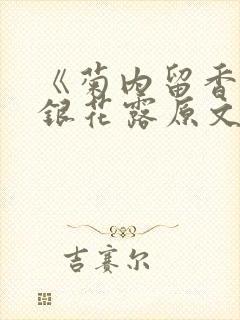 《菊内留香
银花露原文
吉赛尔